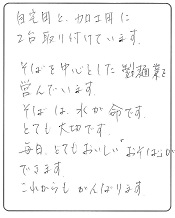 自宅用と、加工用に
2台取り付けています。
そばを中心とした製麺業を
営んでいます。
そばは、水が命です。
とても大切です。
毎日、とてもおいしいおそばが
できます
これからもがんばります